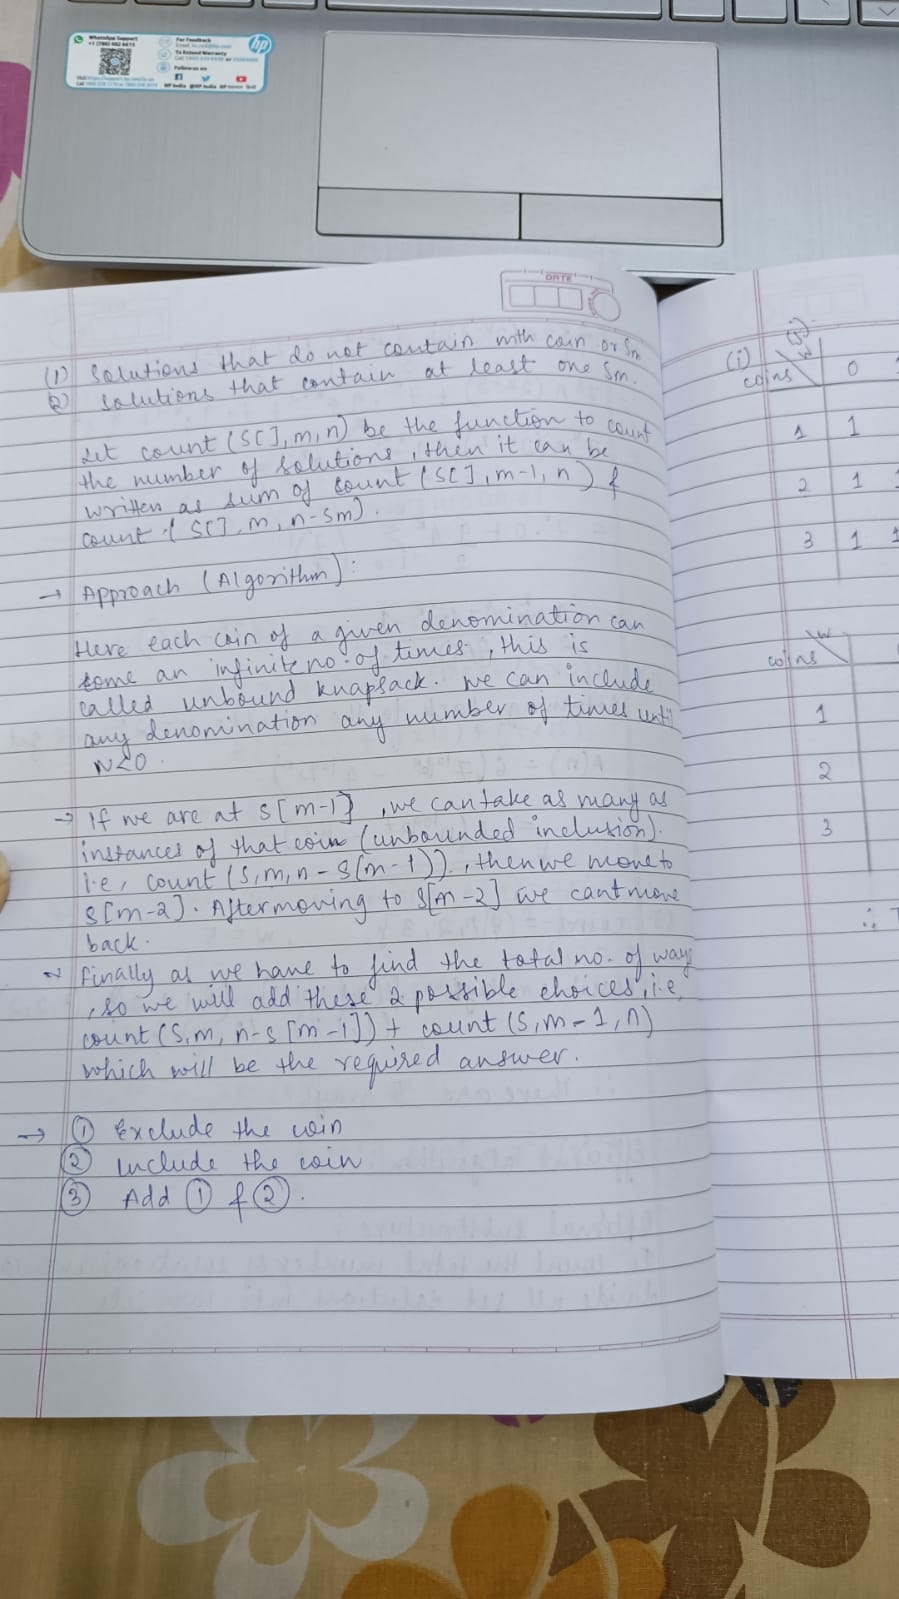 WhatsApp Support
+1 (786) 682 6615
For Feedback
To Extend Warranty
Follow us on
HP India @HP India
hp
DATE
(1) Solutions that do not contain mth coin or Sm
(2) Solutions that contain at least one Sm.
Let count (S[], m, n) be the function to count
the number of solutions, then it can be
written as sum of count (S[], m-1, n) &
count (S[], m, n-Sm).
→ Approach (Algorithm):
Here each coin of a given denomination can
come an infinite no. of times, this is
called unbound knapsack. We can include
any denomination any number of times until
N<0.
→ If we are at S[m-1], we can take as many as
instances of that coin (unbounded inclusion).
i.e, count (S, m, n - S[m-1]), then we move to
S[m-2]. After moving to S[m-2] we cant move
back.
→ Finally as we have to find the total no. of ways
, so we will add these 2 possible choices, i.e
count (S, m, n-S[m-1]) + count (S, m-1, n)
which will be the required answer.
→ ① Exclude the coin
② Include the coin
③ Add ① & ②.
(i)
coins W 0
1 1
2 1 1
3 1 1
coins W
1
2
3
∴